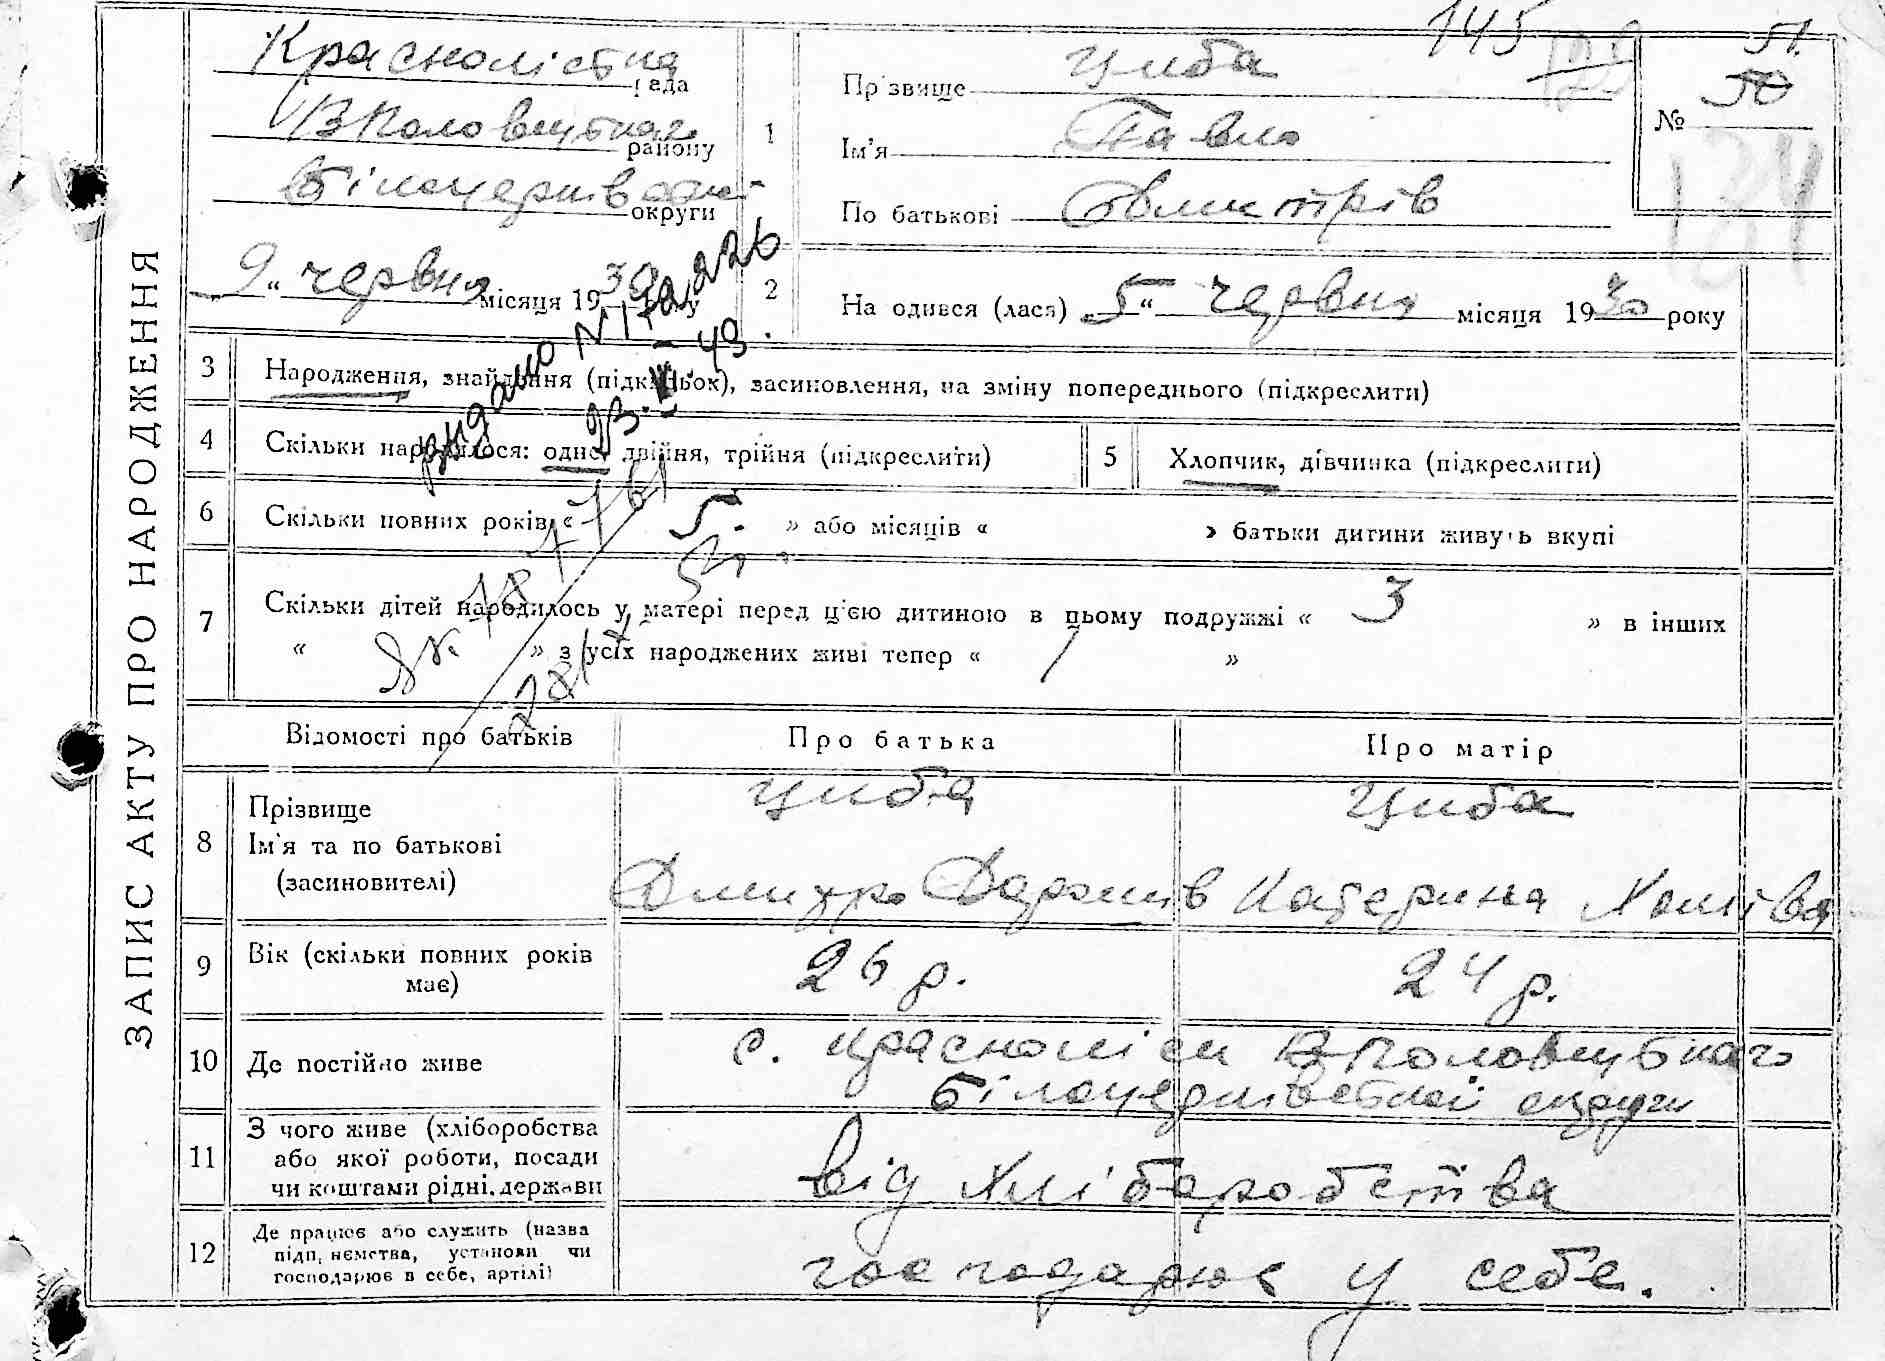 ЗАПИС АКТУ ПРО НАРОДЖЕННЯ
145
Краснолістна рада
ВПоловецького району
Білоцерківської округи
9 „ червня місяця 1930 року
1
Прізвище Циба
Ім’я Павло
По батькові Дмитрів
51.
№ 50
134
2
На одився (лася) 5 “ червня місяця 1930 року
видано
23. 43.
3 Народження, знайдення (підкидьок), засиновлення, на зміну попереднього (підкреслити)
4 Скільки народилося: одне, двійня, трійня (підкреслити)
5 Хлопчик, дівчинка (підкреслити)
6 Скільки повних років « 5. » або місяців « » батьки дитини живуть вкупі
7 Скільки дітей народилось у матері перед цією дитиною в цьому подружжі « 3 » в інших
“ » з усіх народжених живі тепер “ 1 »
Відомості про батьків
Про батька
Про матір
8 Прізвище
Ім’я та по батькові
(засиновителі)
Циба
Дмитро
Циба
Катерина Хомівна
9 Вік (скільки повних років
має)
26 р.
24 р.
10 Де постійно живе
с. Красноліси ВПоловецького
Білоцерківської округи
11 З чого живе (хліборобства
або якої роботи, посади
чи коштами рідні, держави
від хліборобства
12 Де працює або служить (назва
підп, немства, установи чи
господарює в себе, артілі)
господарює у себе.